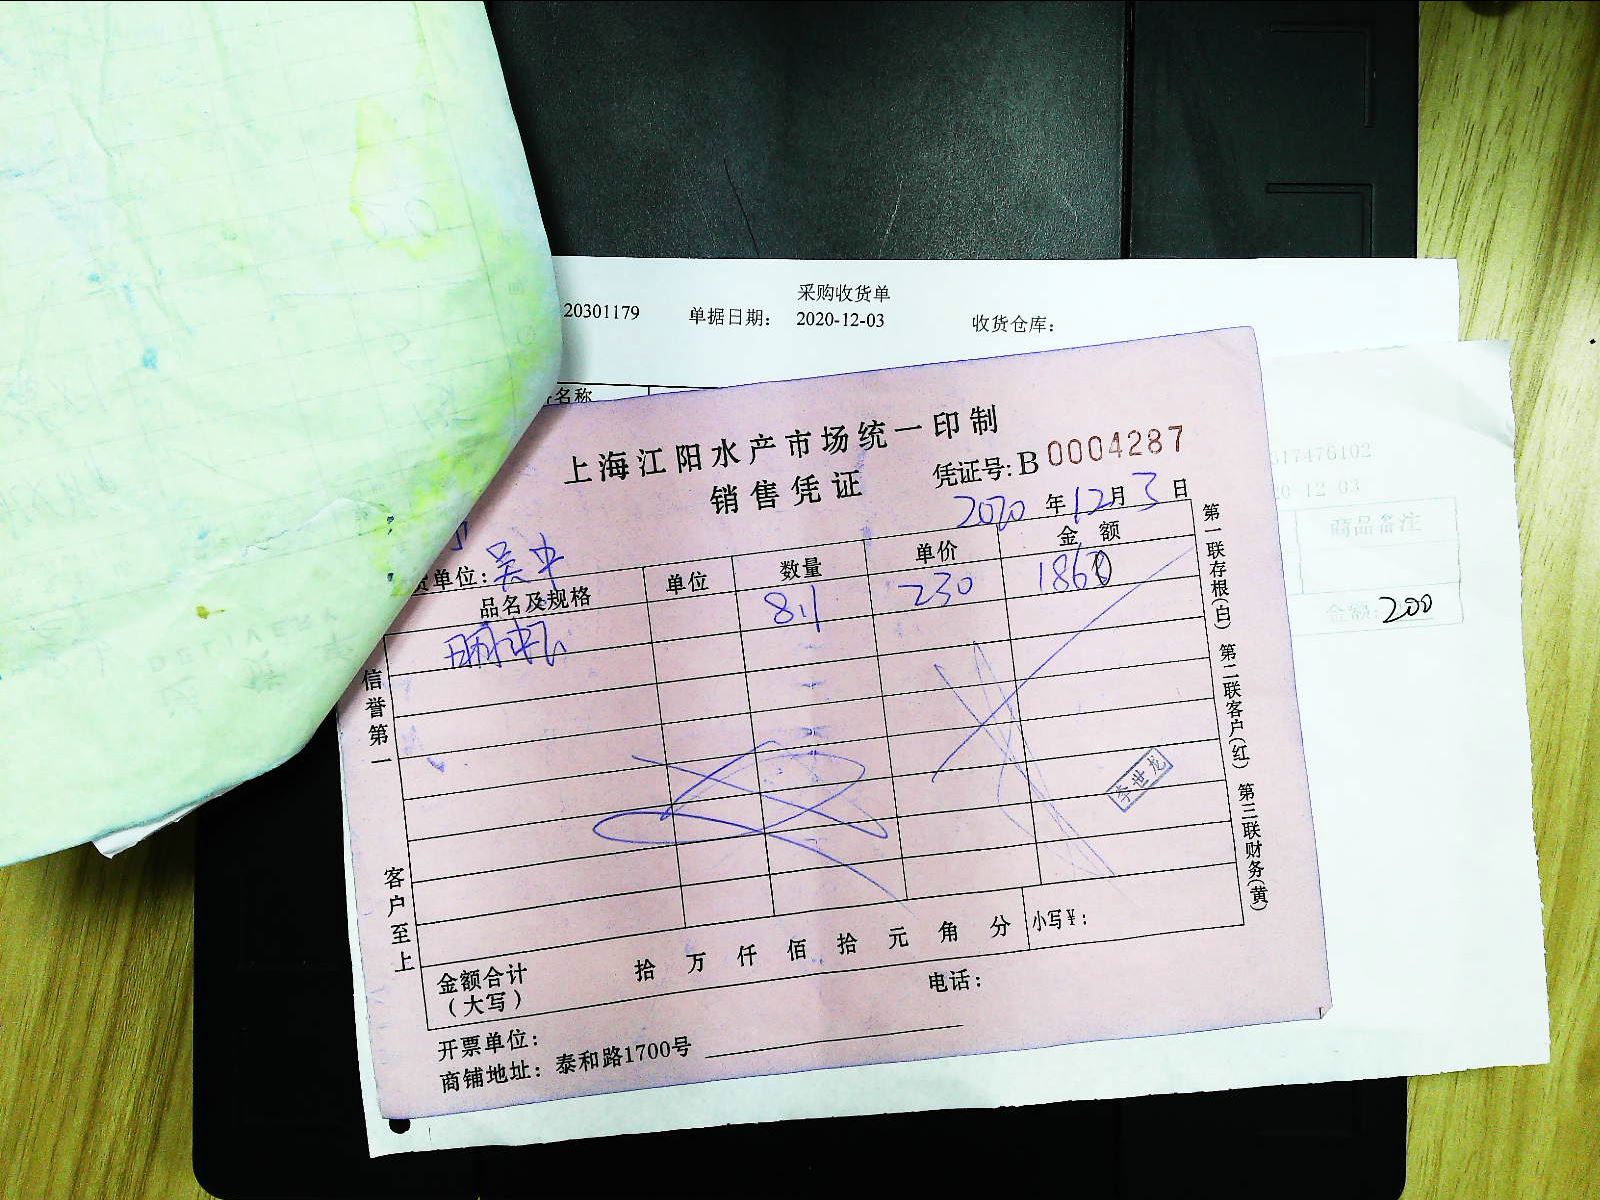 采购收货单
20301179 单据日期： 2020-12-03 收货仓库：
名称
上海江阳水产市场统一印制
销售凭证
凭证号：B 0004287
2020 年 12 月 3 日
货单位：吴中
品名及规格 单位 数量 单价 金额
8.1 230 1860
李世龙
金额合计（大写） 拾 万 仟 佰 拾 元 角 分 小写¥：
开票单位： 电话：
商铺地址：泰和路1700号
信誉第一
客户至上
第一联存根(白) 第二联客户(红) 第三联财务(黄)
617476102
20-12-03
商品备注
金额：200